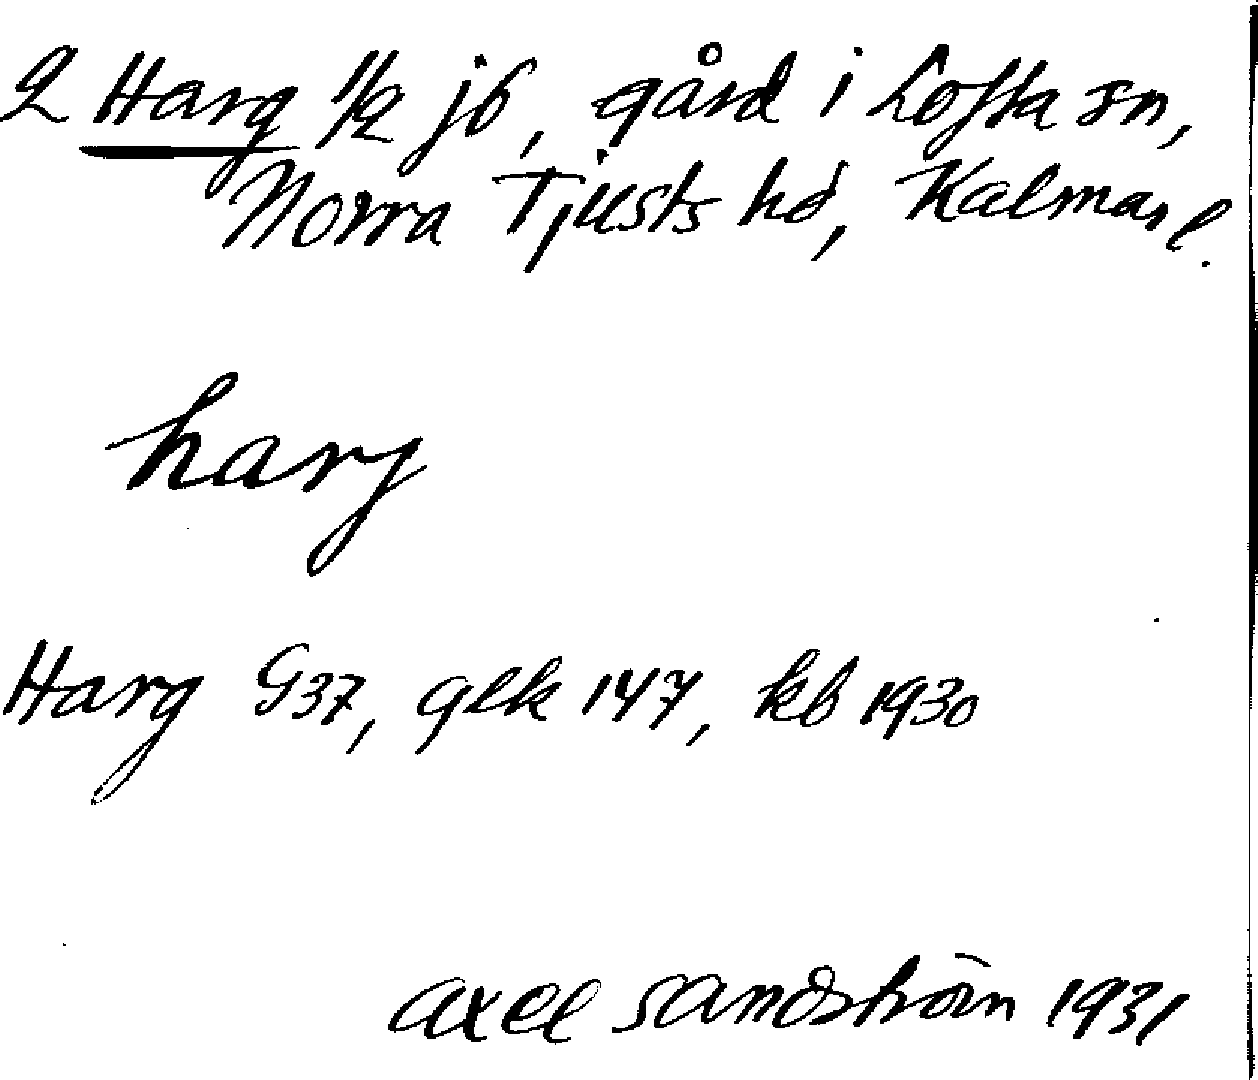 2 Harg 1/2 jb, gård i Lofta sn,
Norra Tjusts hd, Kalmar l.
harj
Harg G37, glk 147, kb 1930
Axel Sandström 1931